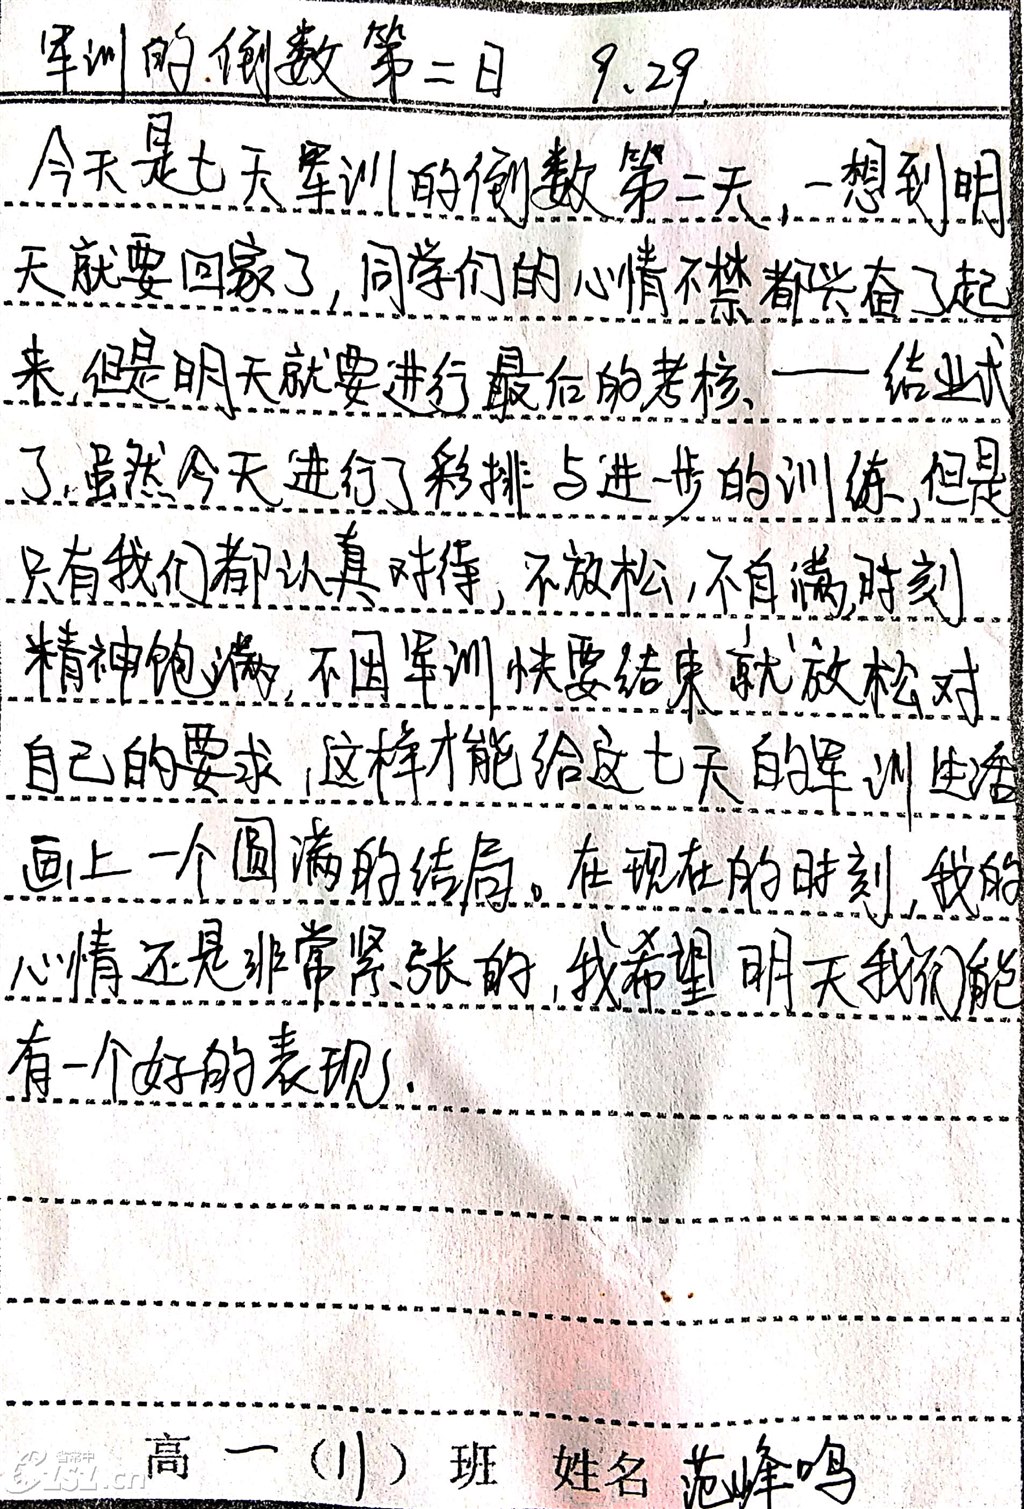 军训的倒数第二日 9.29.
今天是七天军训的倒数第二天,一想到明
天就要回家了,同学们的心情不禁都兴奋了起
来,但是明天就要进行最后的考核、——结业式
了,虽然今天进行了彩排与进一步的训练,但是
只有我们都认真对待,不放松,不自满,时刻
精神饱满,不因军训快要结束就放松对
自己的要求,这样才能给这七天的军训生活
画上一个圆满的结局。在现在的时刻,我的
心情还是非常紧张的,我希望明天我们能
有一个好的表现.
高一(11)班 姓名 范峰鸣
省常中
CZSZ.cn